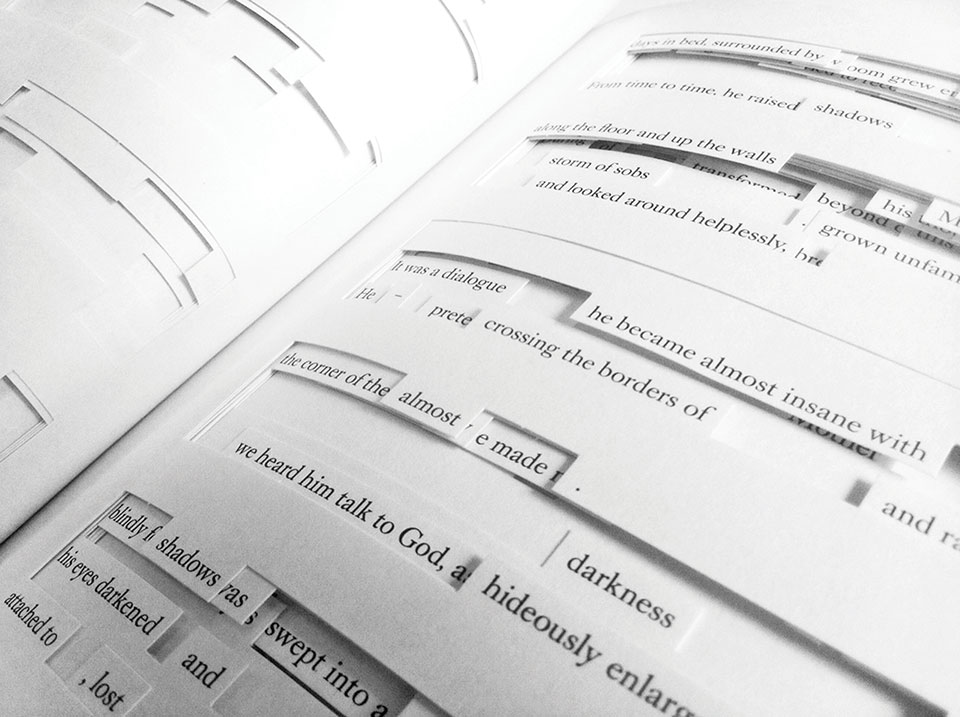 days in bed, surrounded by oom grew
From time to time, he raised shadows
along the floor and up the walls
transformed
storm of sobs beyond his
and looked around helplessly, grown unfam
It was a dialogue he became almost insane with
He – prete crossing the borders of
Mother
the corner of the almost e made and ra
we heard him talk to God, a darkness
blindly f shadows hideously enlarg
his eyes darkened swept into a
attached to and
, lost